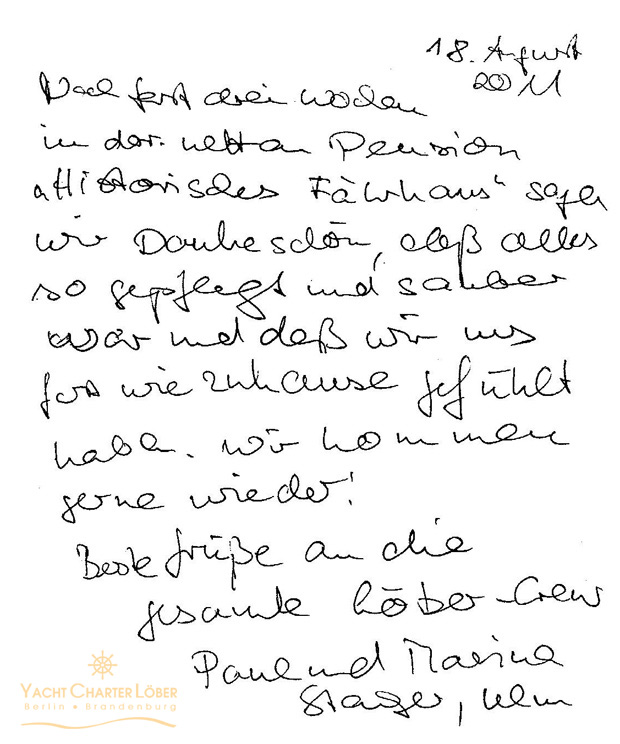 18. August
2011
Nach fast drei Wochen
in der netten Pension
„Historisches Fährhaus“ sagen
wir Dankeschön, daß alles
so gepflegt und sauber
war und daß wir uns
fast wie zuhause gefühlt
haben. Wir kommen
gerne wieder!
Beste Grüße an die
gesamte Löber-Crew
Paul und Marina
Ulm
YACHT CHARTER LÖBER
Berlin • Brandenburg